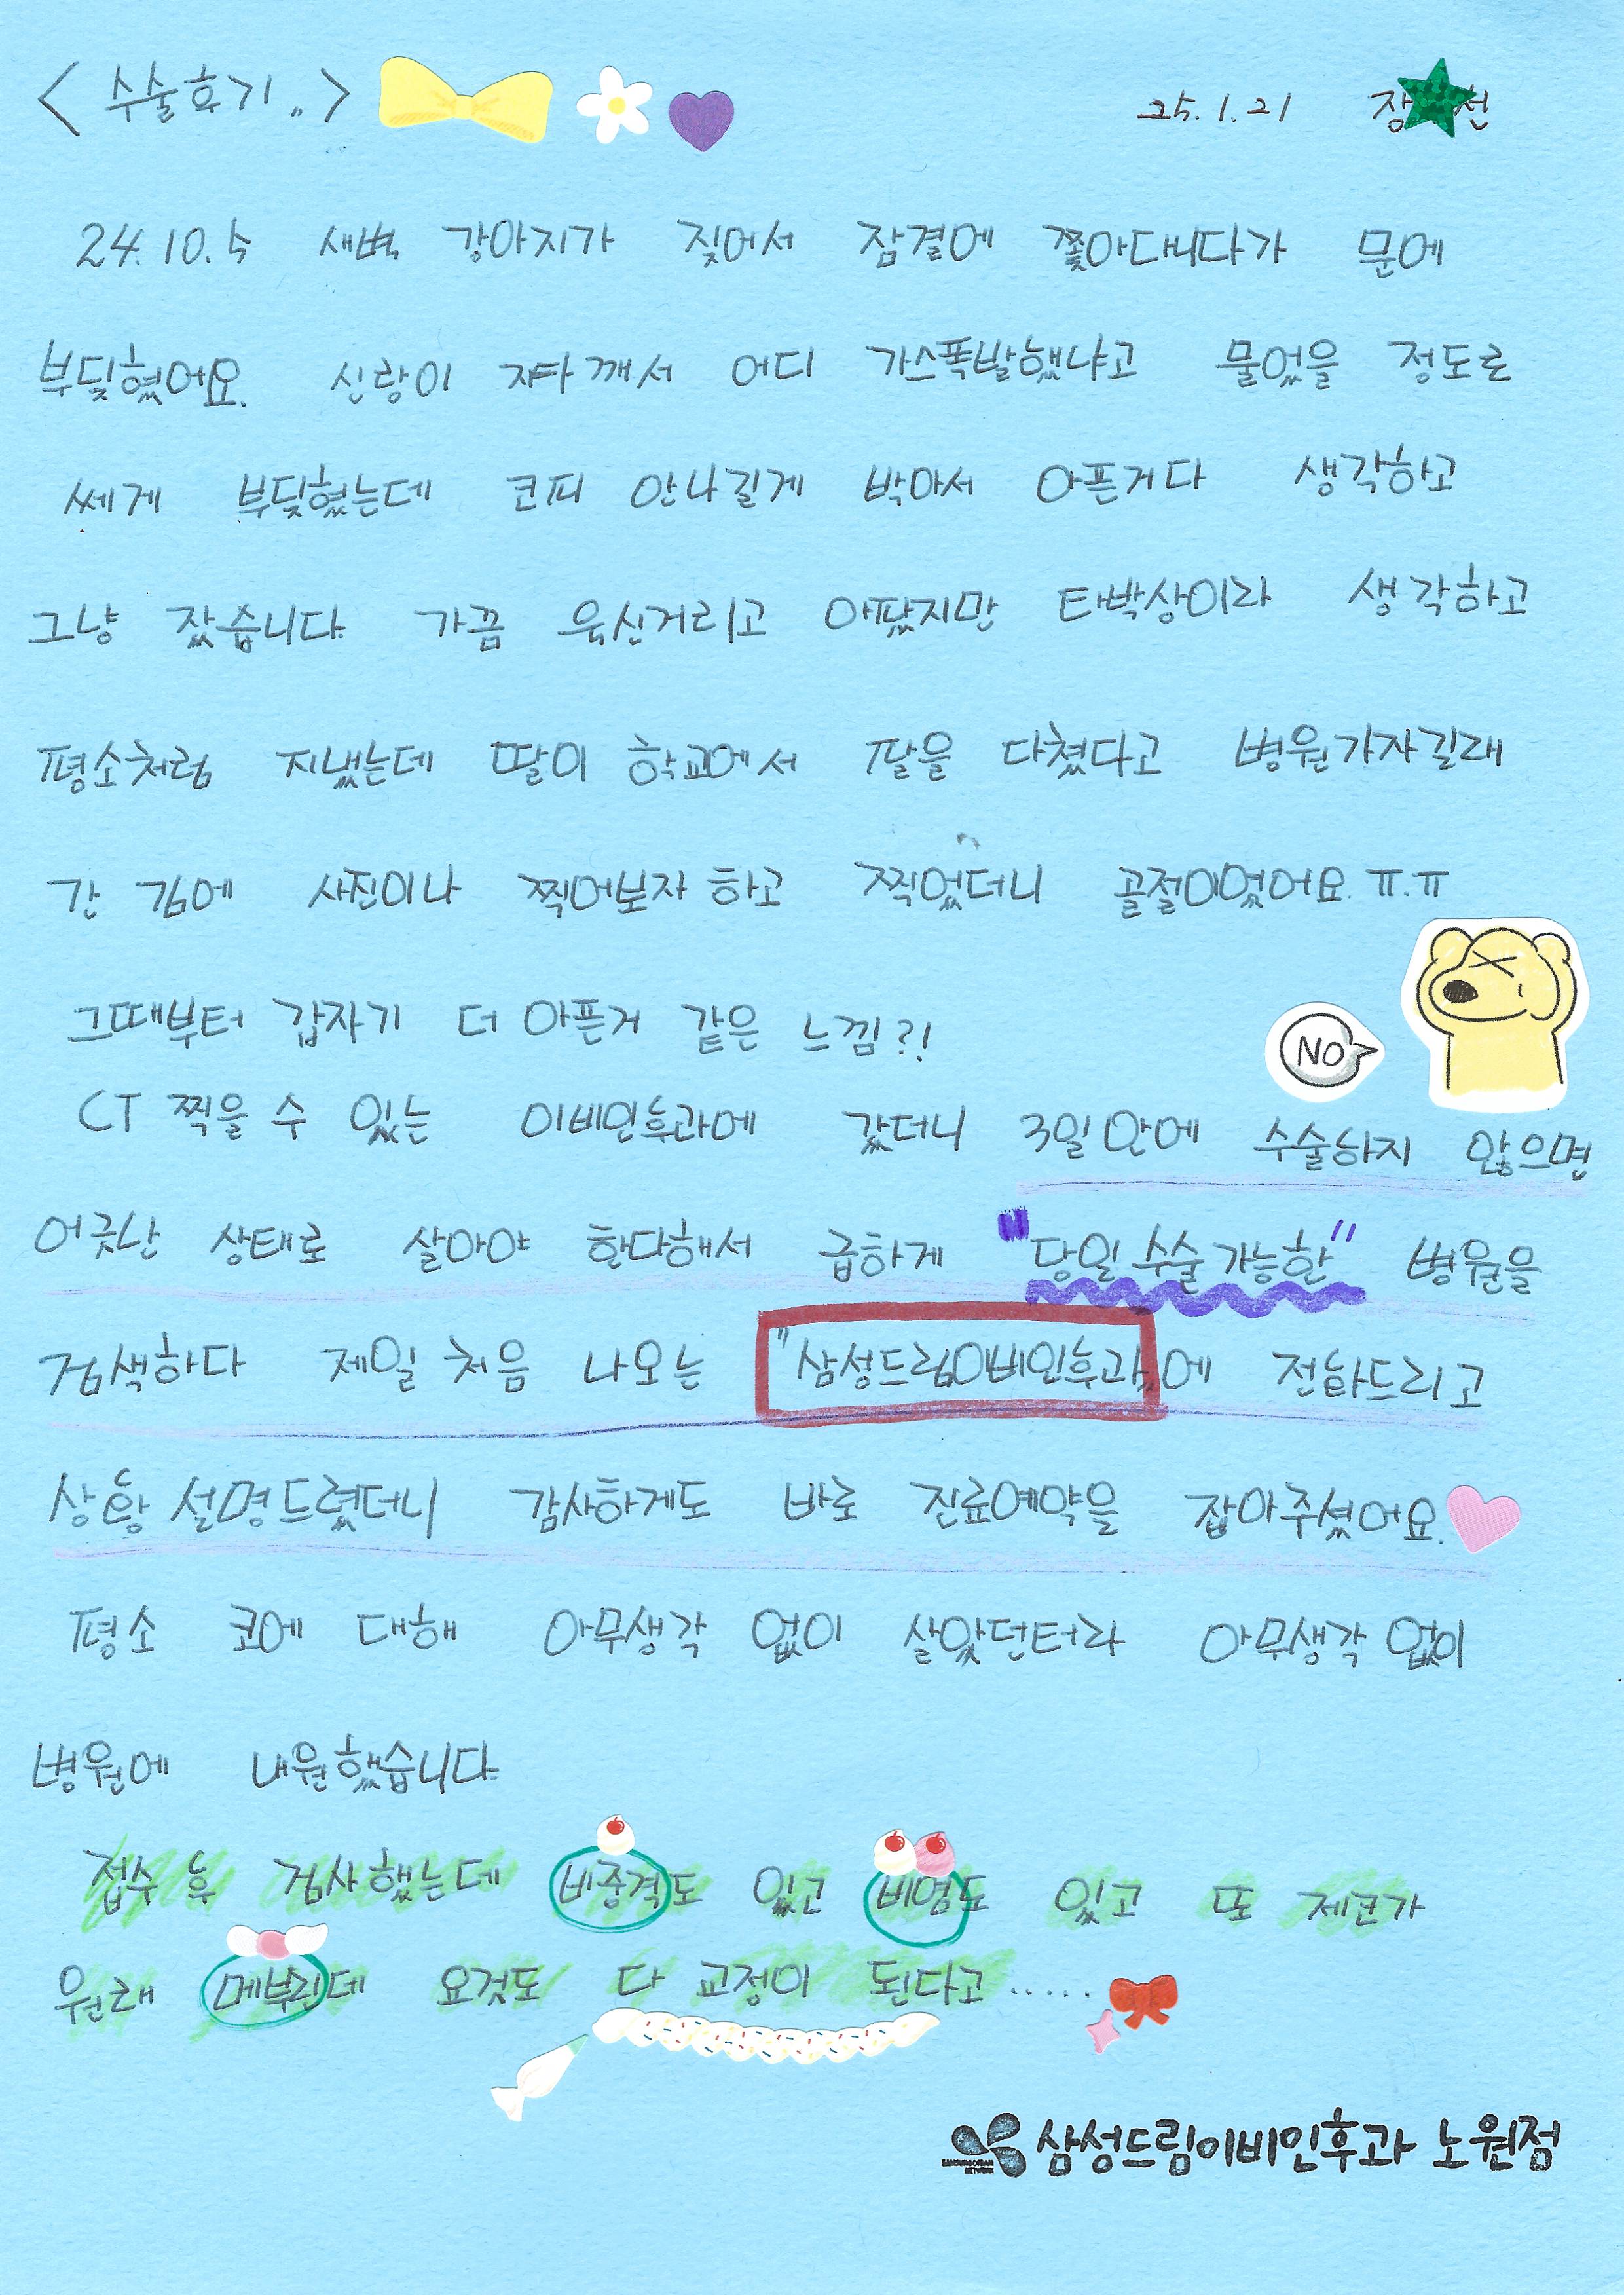 < 수술후기.. >
25.1.21 장 선
24.10.5 새벽 강아지가 짖어서 잠결에 쫓아다니다가 문에
부딪혔어요. 신랑이 자다 깨서 어디 가스폭발했냐고 물었을 정도로
쎄게 부딪혔는데 코피 안나길게 박아서 아픈거다 생각하고
그냥 잤습니다. 가끔 욱신거리고 아팠지만 타박상이라 생각하고
평소처럼 지냈는데 딸이 학교에서 팔을 다쳤다고 병원가자길래
간 김에 사진이나 찍어보자 하고 찍었더니 골절이었어요.ㅠ.ㅠ
그때부터 갑자기 더 아픈거 같은 느낌?!
NO
CT 찍을 수 있는 이비인후과에 갔더니 3일안에 수술하지 않으면
어긋난 상태로 살아야 한다해서 급하게 "당일 수술 가능한" 병원을
검색하다 제일 처음 나오는 "삼성드림이비인후과"에 전화드리고
상황 설명드렸더니 감사하게도 바로 진료예약을 잡아주셨어요.
평소 코에 대해 아무생각 없이 살았던터라 아무생각 없이
병원에 내원했습니다.
접수 후 검사했는데 비중격도 있고 비염도 있고 또 제코가
원래 메부린데 요것도 다 교정이 된다고.....
삼성드림이비인후과 노원점